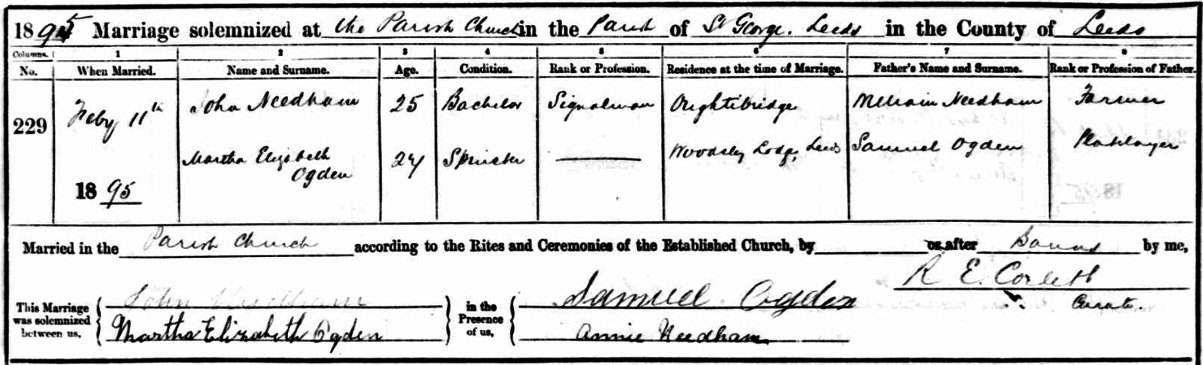 1895 Marriage solemnized at the Parish Church in the Parish of St George. Leeds in the County of Leeds
Columns. 1 2 3 4 5 6 7 8
No. When Married. Name and Surname. Age. Condition. Rank or Profession. Residence at the time of Marriage. Father's Name and Surname. Rank or Profession of Father.
229 Feby 11th 1895
John Needham 25 Bachelor Signalman Oughtibridge William Needham Farmer
Martha Elizabeth Ogden 24 Spinster Woodsley Lodge, Leeds Samuel Ogden Platelayer
Married in the Parish Church according to the Rites and Ceremonies of the Established Church, by or after Banns by me,
R E Corlett
Curate.
This Marriage was solemnized between us,
John Needham
Martha Elizabeth Ogden
in the Presence of us,
Samuel Ogden
Annie Needham